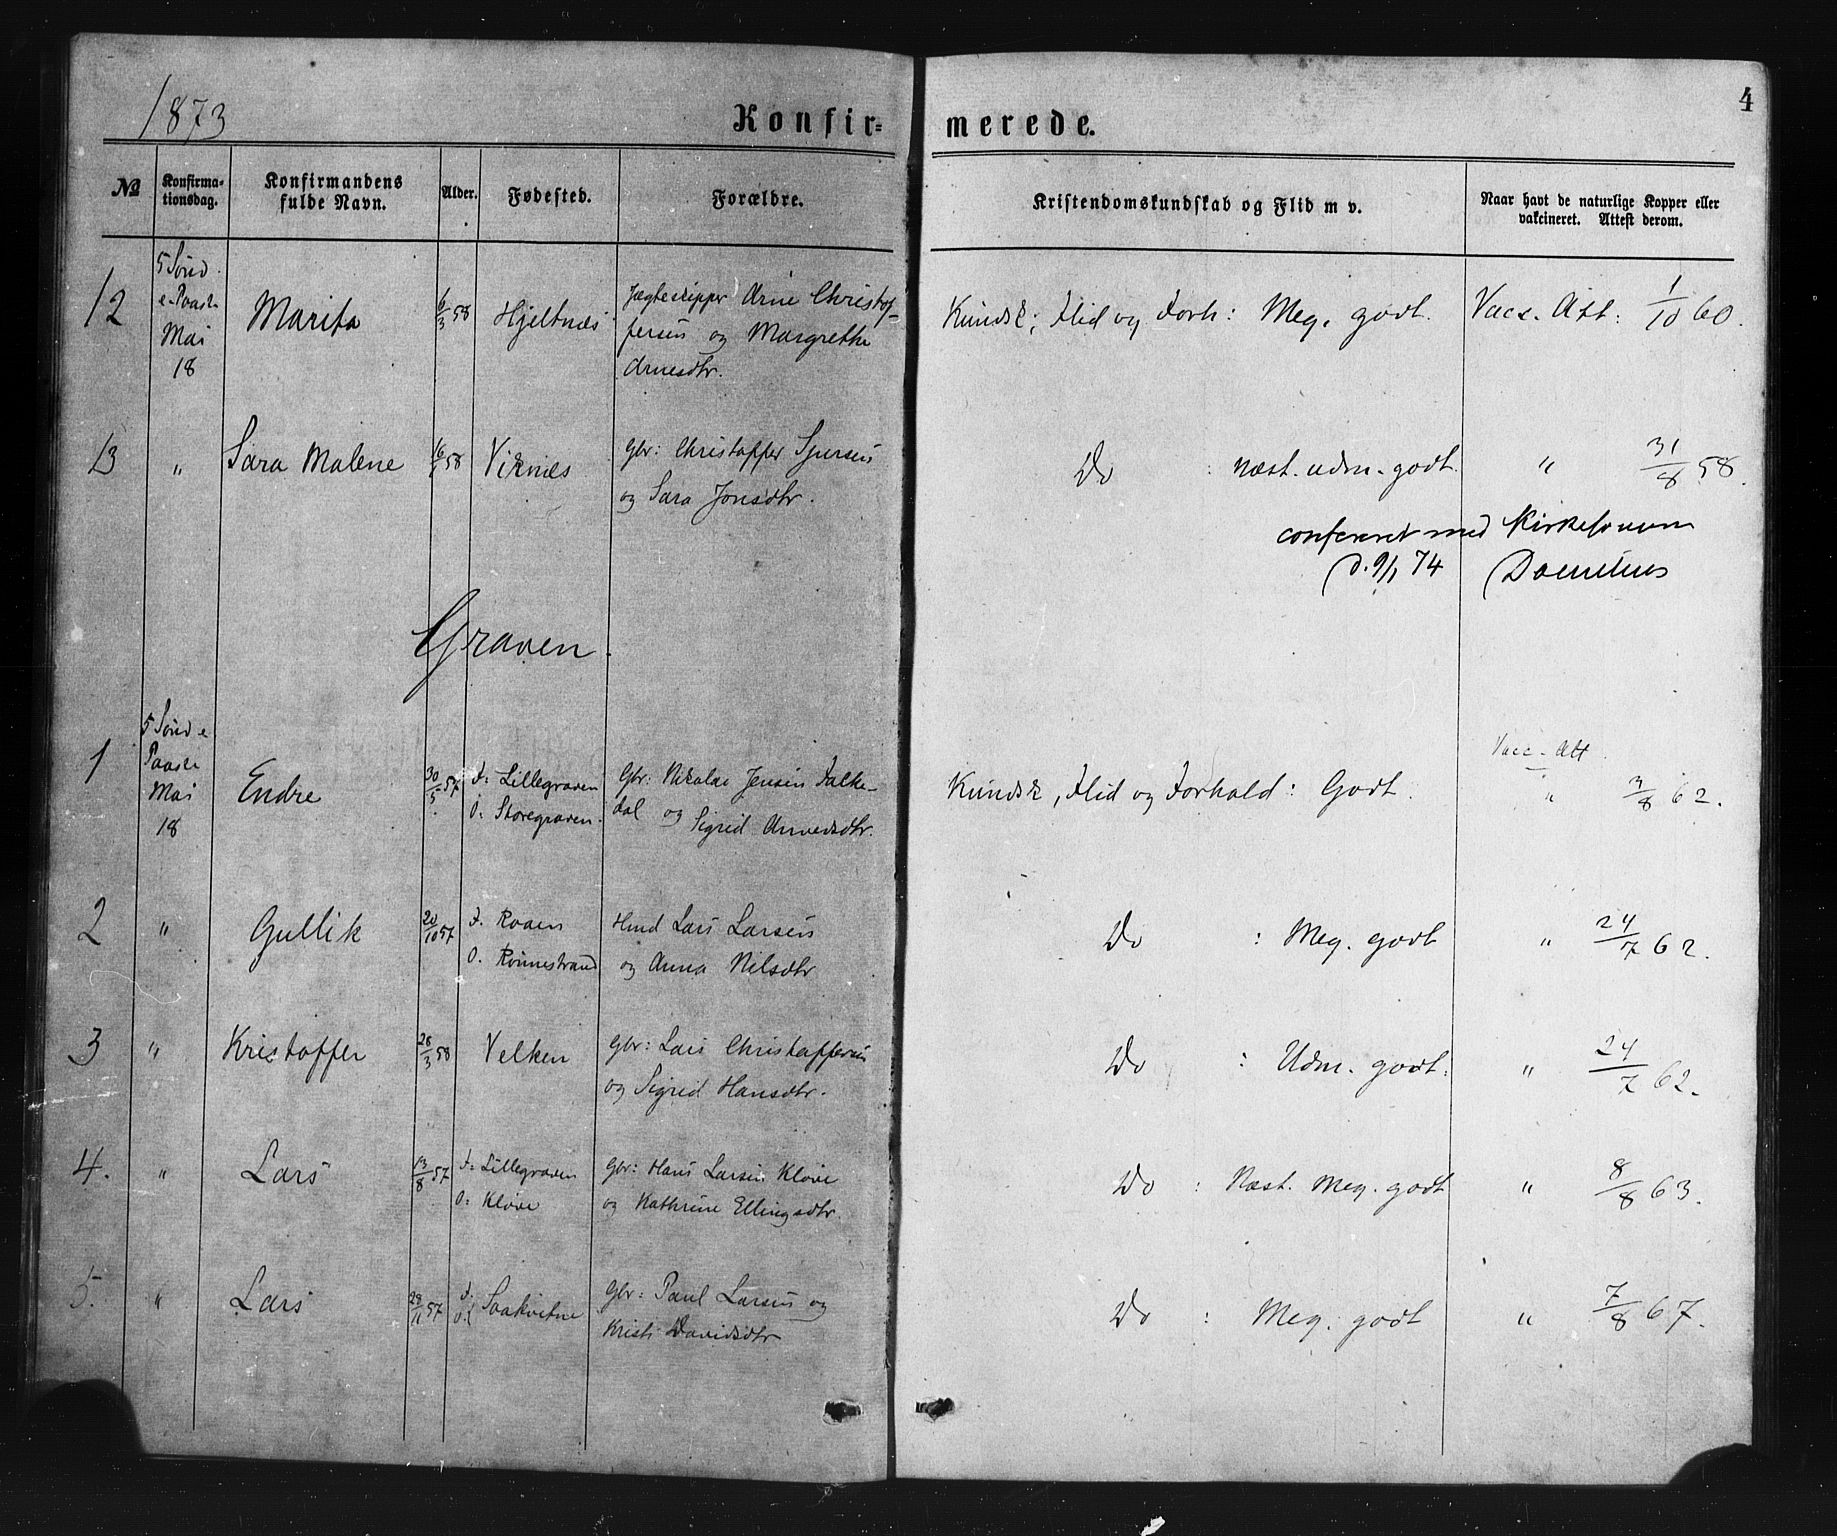 1873
Konfir= merede.
4
No
Konfirma-
tionsdag.
Konfirmandens
fulde Navn.
Alder.
Fødested.
Forældre.
Kristendomskundskab og Flid m v.
Naar havt de naturlige Kopper eller
vakcineret. Attest derom.
12
5 Sønd.
e. Paaske
Mai
18
Marita
6/3 58
Hjeltnæs
Jægteskipper Arne Christof-
fersen og Margrethe
Arnesdtr.
Kundsk; Flid og Forh: Meg. godt.
Vacc. Att: 1/10 60.
13 " Sara Malene 16/5 58 Viknæs
Gbr: Christoffer Sjursen
og Sara Jonsdtr.
Do : næst. udm. godt. " 31/8 58.
confereret med
d. 9/1 74
Graven.
1
5 Sønd e
Paaske
Mai
18
Endre
30/5 57
F: Lillegraven
O: Storegraven.
Gbr: Nikolai Jensen Falke-
dal og Sigrid
Kundsk, Flid og Forhold: Godt.
Vacc. Att.
" 3/8 62.
2 " Gullik 20/10 57
F. Kvaen
O. Rønnestrand
Hmd Lars Larsen
og Anna Nilsdtr
Do : Meg. godt " 24/7 62.
3 " Kristoffer 28/3 58 Velken
Gbr: Lars Christoffersen
og Sigrid Hansdtr.
Do : Udm. godt. " 24/7 62.
4. " Lars 13/8 57
F: Lillegraven
O: Kløve
Gbr: Hans Larsen Kløve
og Kathrine Ellingsdtr.
Do : Næst. Meg. godt " 8/8 63.
5. " Lars 28/11 57
F.
O. Saakvitne
Gbr: Paul Larsen og
Kristi Davidsdtr
Do : Meg. godt " 7/8 67.